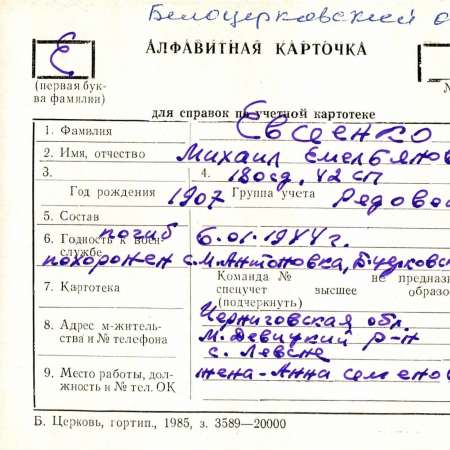 Белоцерковский
Е
АЛФАВИТНАЯ КАРТОЧКА
(первая бук-
ва фамилии)
для справок по учетной картотеке
1. Фамилия Евсеенко
2. Имя, отчество Михаил Емельянов
3. 4. 180сд, 42 сп
Год рождения 1907 Группа учета Рядовой
5. Состав
6. Годность к воен- погиб 6.01.1944г.
службе похоронен с.М.Антоновка,
Команда № не предназ
7. Картотека спецучет высшее образо
(подчеркнуть)
8. Адрес м-житель- Черниговская обл.
ства и № телефона М. Девицкий р-н
с. Левские
9. Место работы, дол- жена-Анна Семенов
жность и № тел. ОК
Б. Церковь, гортип., 1985, з. 3589—20000